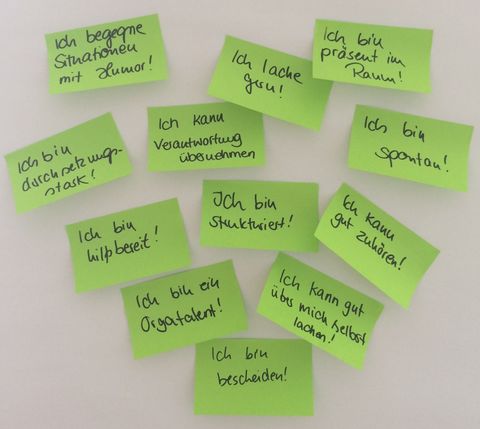 Ich begegne
Situationen
mit Humor!
Ich lache
gern!
Ich bin
präsent im
Raum!
Ich bin
durchsetzungs-
stark!
Ich kann
Verantwortung
übernehmen
Ich bin
spontan!
Ich bin
hilfbereit!
Ich bin
strukturiert!
Ich kann
gut zuhören!
Ich bin ein
Orgatalent!
Ich kann gut
über mich selbst
lachen!
Ich bin
bescheiden!